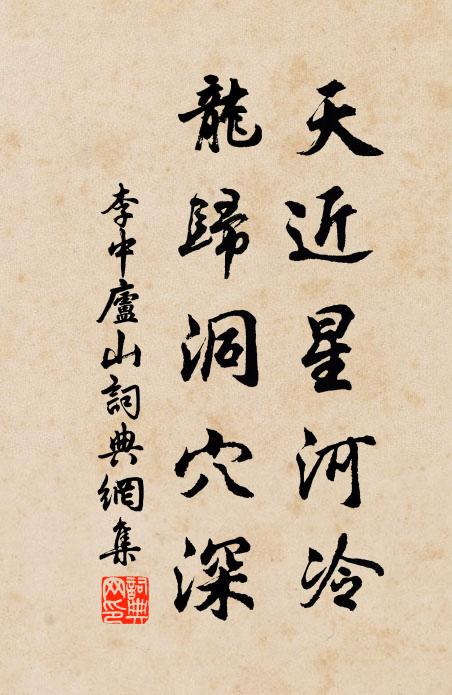 天近星河冷
龍歸洞穴深
李中廬山詞典網集
詞典網印